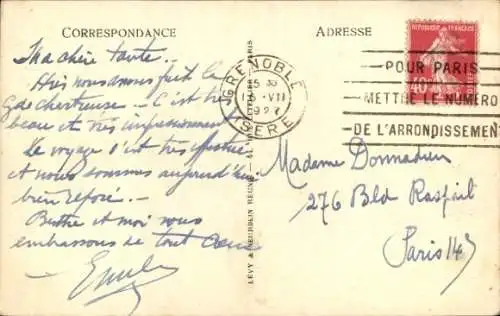 CORRESPONDANCE
Ma chère tante.
Hier nous avons fait la
gde chartreuse. C'est très
beau et très impressionnant
Le voyage s'est très
et nous sommes aujourd'hui
bien reposé.
Berthe et moi nous
embrassons de tout coeur
Emile
LÉVY & NEURDEIN RÉUNIS
PARIS
ADRESSE
GRENOBLE
VII
ISÈRE
REPUBLIQUE FRANÇAISE
40
POUR PARIS
METTRE LE NUMÉRO
DE L'ARRONDISSEMENT
Madame Donnadieu
276 Bld Raspail
Paris 14e